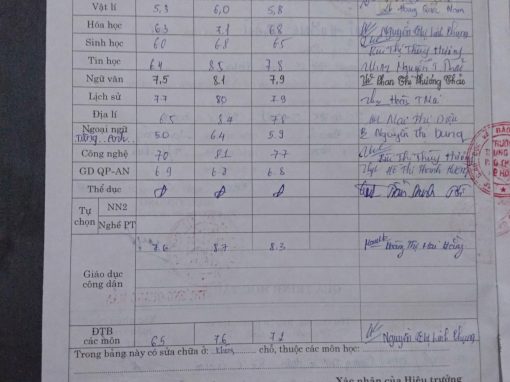 Vật lí 5.3 6,0 5,8
Hóa học 6.3 7.1 6.8 Nguyễn Thị Linh Phụng
Sinh học 6.0 6.8 6.5 Bùi Thị Thùy Hường
Tin học 6.4 8.5 7.8 Nguyễn T
Ngữ văn 7,5 8.1 7,9 Phan Thị Phương Thảo
Lịch sử 7.7 8.0 7.9 Hoài
Địa lí 6.5 8.4 7.8 Mai Thị Diệu
Ngoại ngữ 5.0 6.4 5.9 Nguyễn Thị Dung
Tiếng Anh
Công nghệ 7.0 8.1 7.7 Bùi Thị Thùy Hường
GD QP-AN 6.9 6.8 Hồ Thị Thanh Hương
Thể dục đ đ đ
Tự chọn NN2
Nghề PT
Giáo dục công dân 7.6 8.7 8.3 Hoàng Thị Mai Hồng
ĐTB các môn 6.5 7.6 7.2 Nguyễn Thị Linh Phụng
Trong bảng này có sửa chữa ở: không chỗ, thuộc các môn học:
Xác nhận của Hiệu trưởng